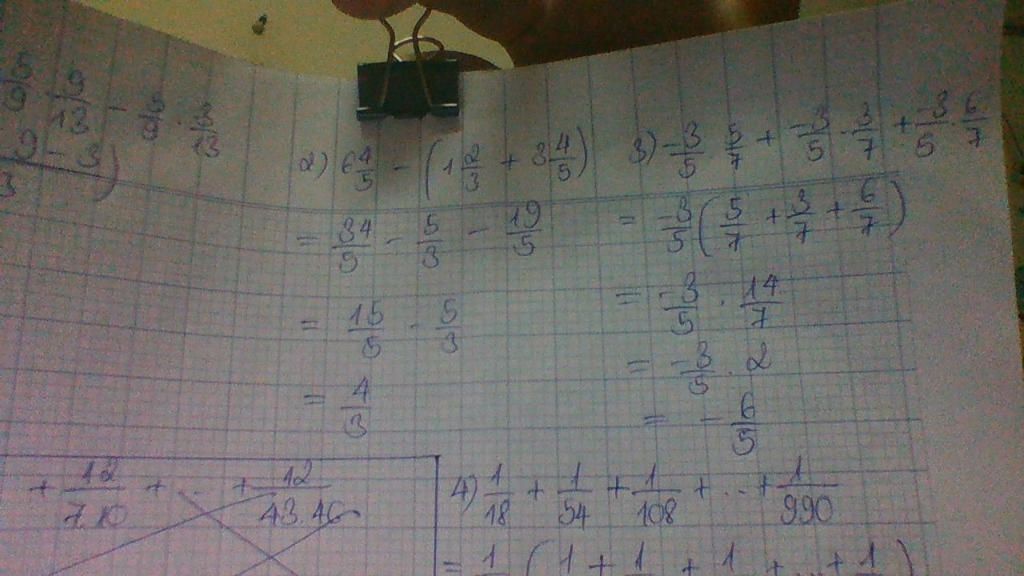 5/9 · 9/13 - 5/9 · 3/13
2) 6 4/5 - (1 2/3 + 3 4/5)
= 34/5 - 5/3 - 19/5
= 15/5 - 5/3
= 4/3
3) -3/5 · 5/7 + -3/5 · 3/7 + -3/5 · 6/7
= -3/5 (5/7 + 3/7 + 6/7)
= -3/5 · 14/7
= -3/5 · 2
= - 6/5
+ 12/7.10 + ... + 12/43.46
4) 1/18 + 1/54 + 1/108 + ... + 1/990